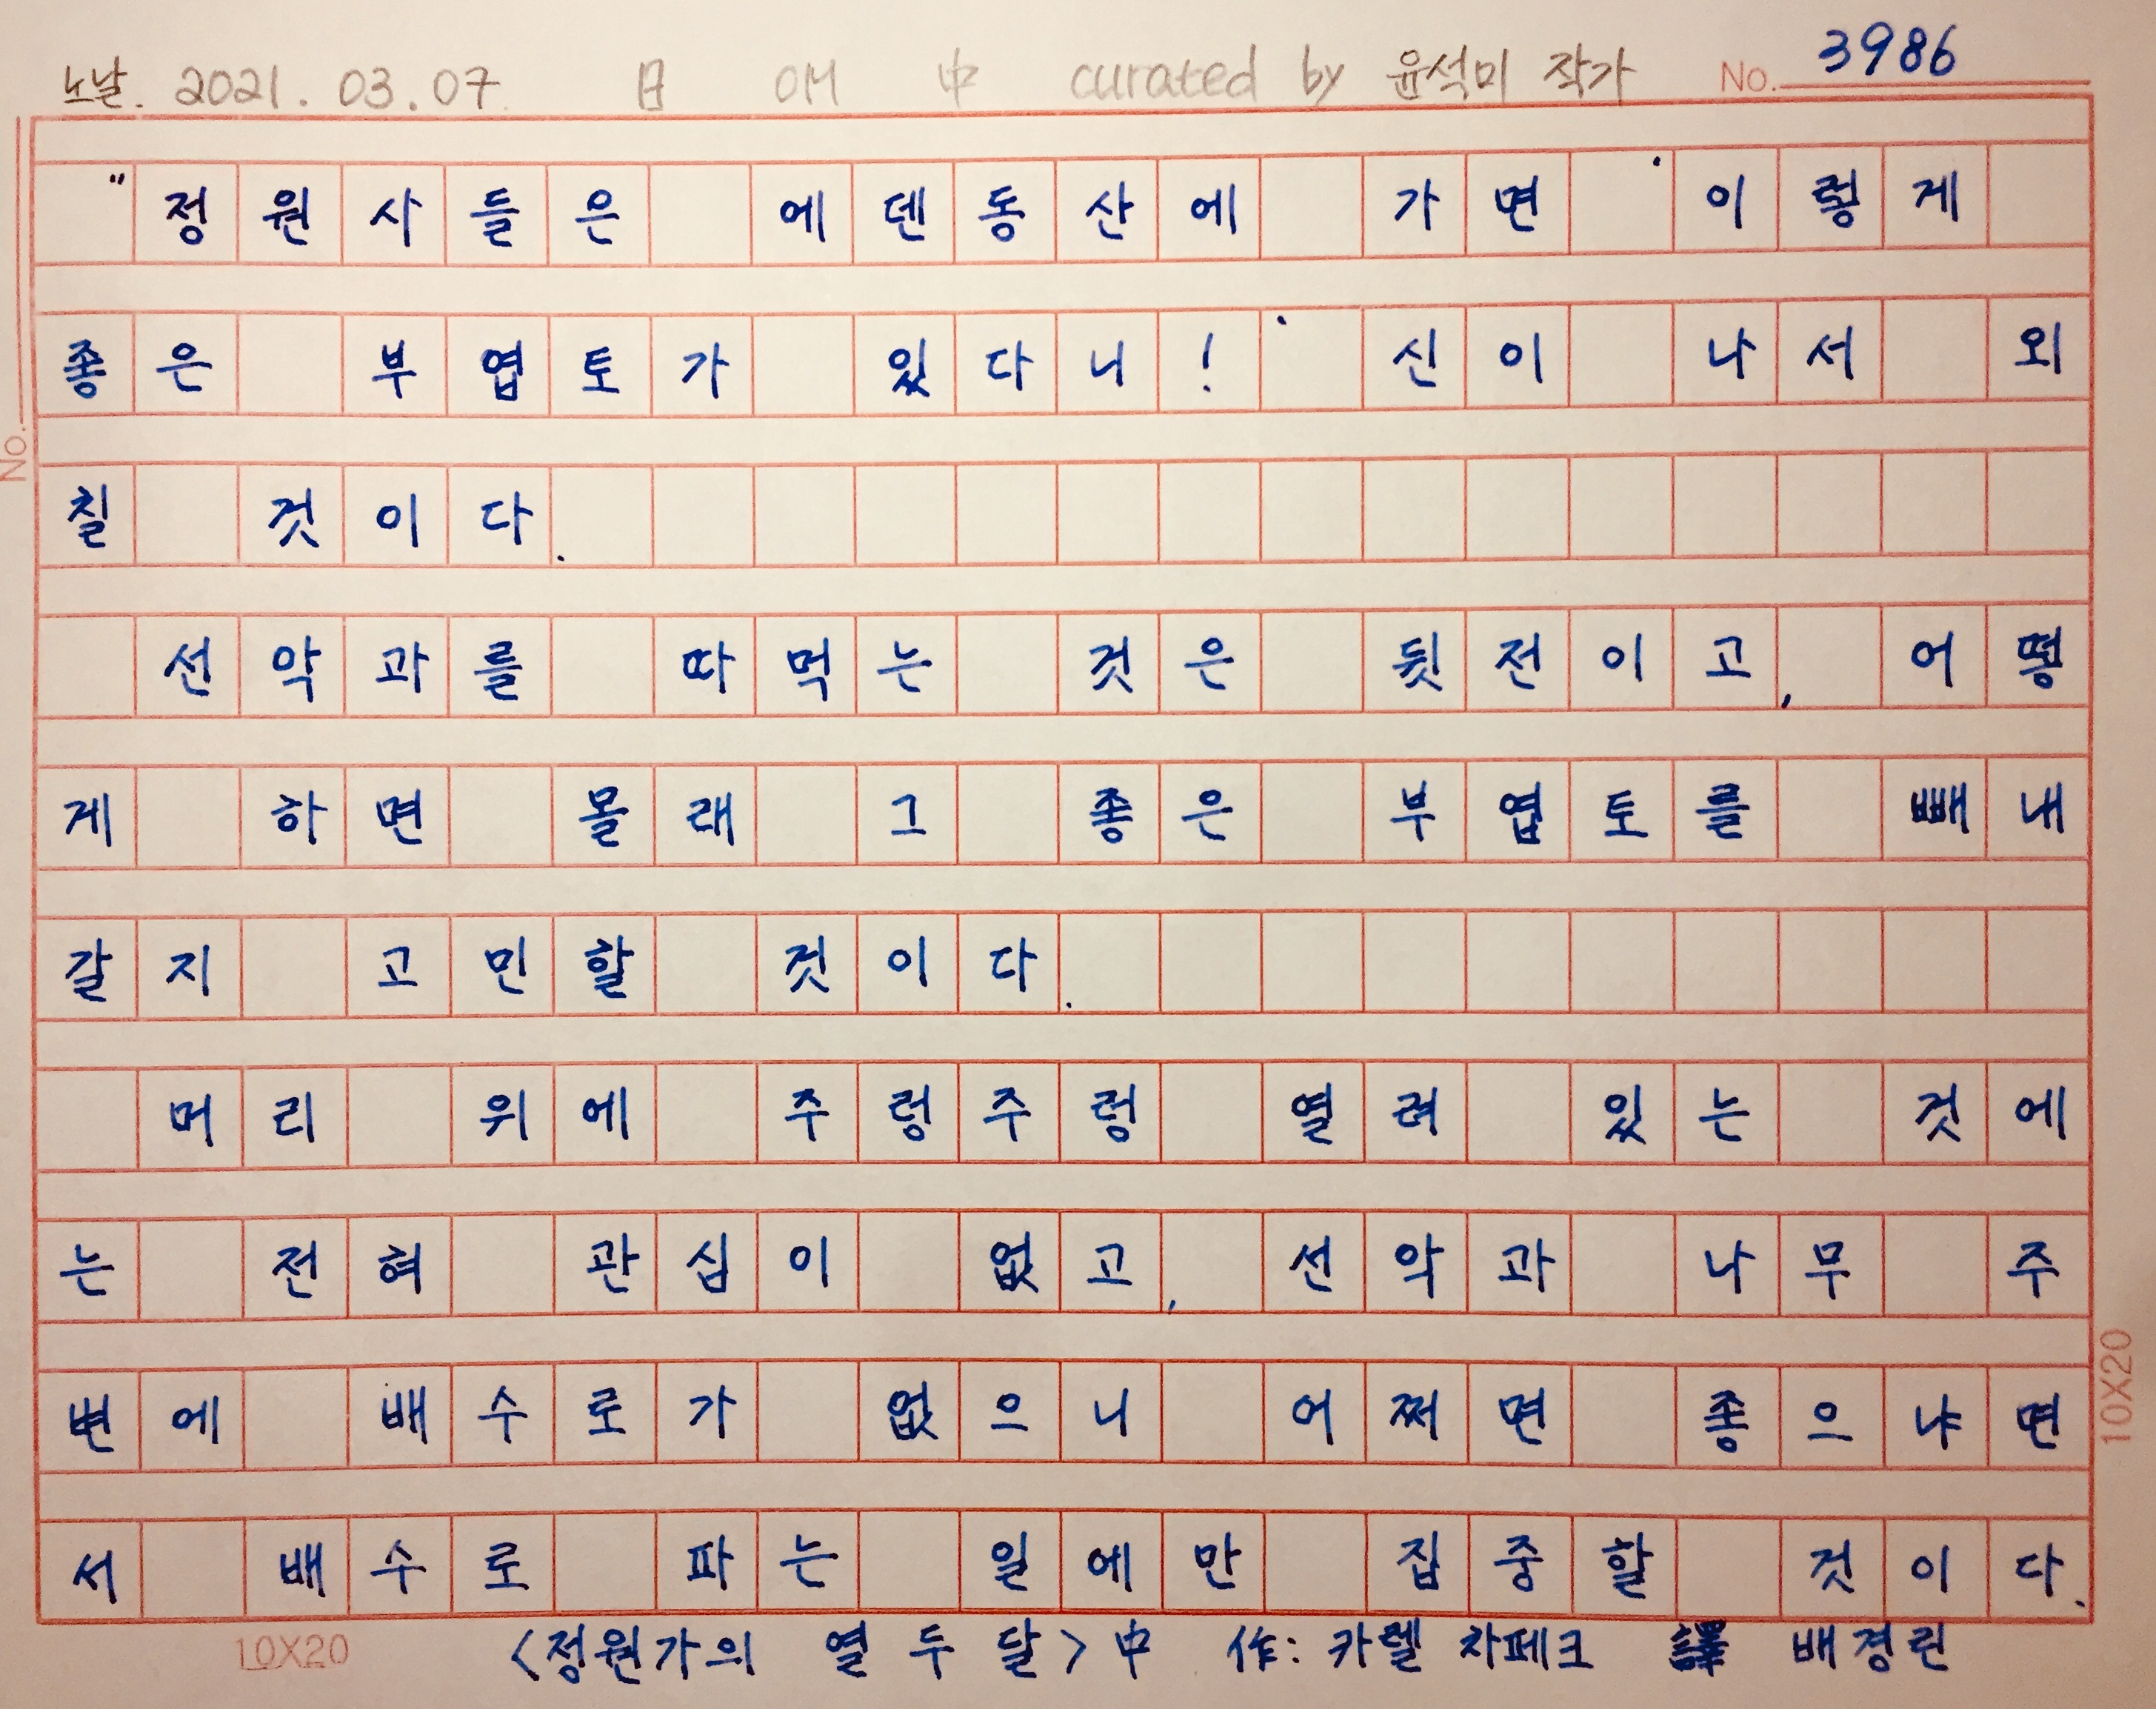 노날. 2021. 03. 07 日 OM 中 curated by 윤석미 작가 No. 3986
"정원사들은 에덴동산에 가면 '이렇게
좋은 부엽토가 있다니!' 신이 나서 외
칠 것이다.
선악과를 따먹는 것은 뒷전이고, 어떻
게 하면 몰래 그 좋은 부엽토를 빼내
갈지 고민할 것이다.
머리 위에 주렁주렁 열려 있는 것에
는 전혀 관심이 없고, 선악과 나무 주
변에 배수로가 없으니 어쩌면 좋으냐면
서 배수로 파는 일에만 집중할 것이다.
<정원가의 열두 달> 中 作: 카렐 차페크 譯 배경린
10X20
No.
10X20